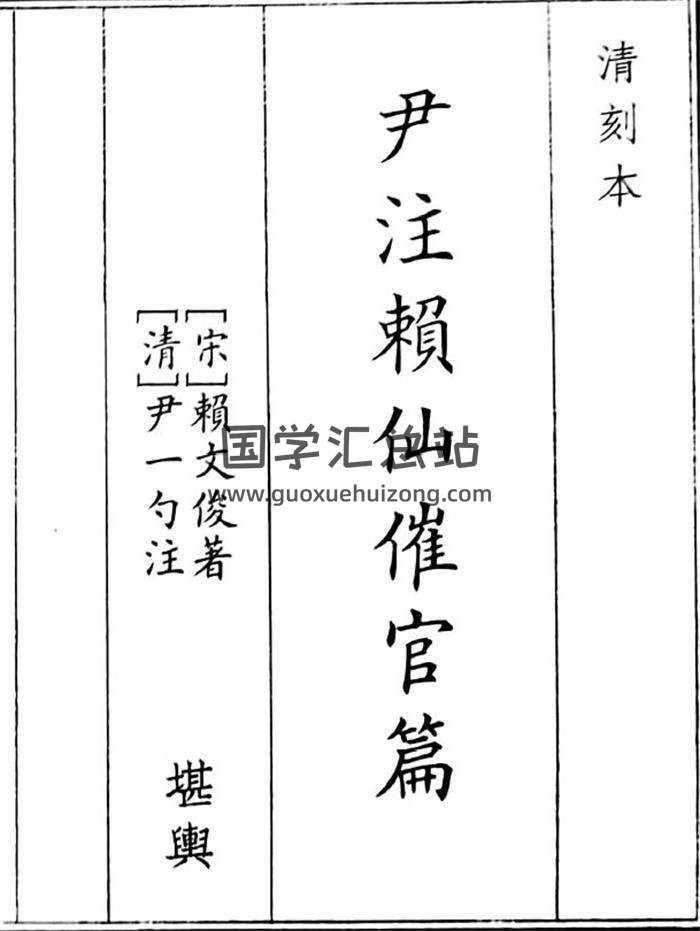 清刻本
尹注賴仙催官篇
[宋]賴文俊著
[清]尹一勺注
堪輿
国学汇总站
www.guoxuehuizong.com